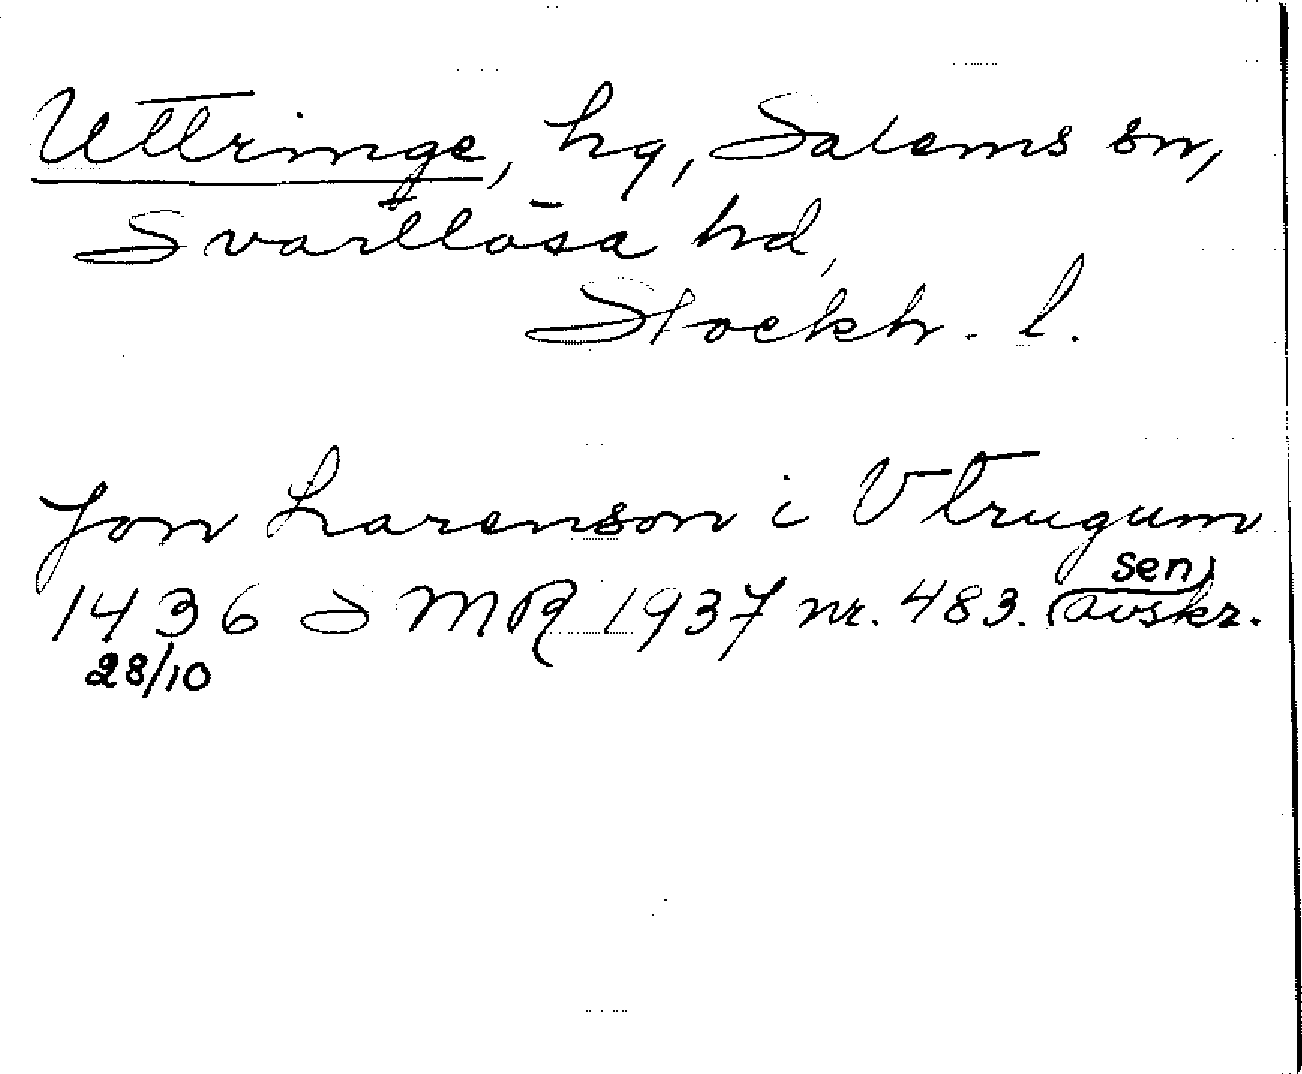 Uttringe, hg, Salems sn,
Svartlösa hd,
Stockh. l.
Jon Larenson i Vtrugum
1436 28/10 SMR 1937 nr. 483. (sen avskr.